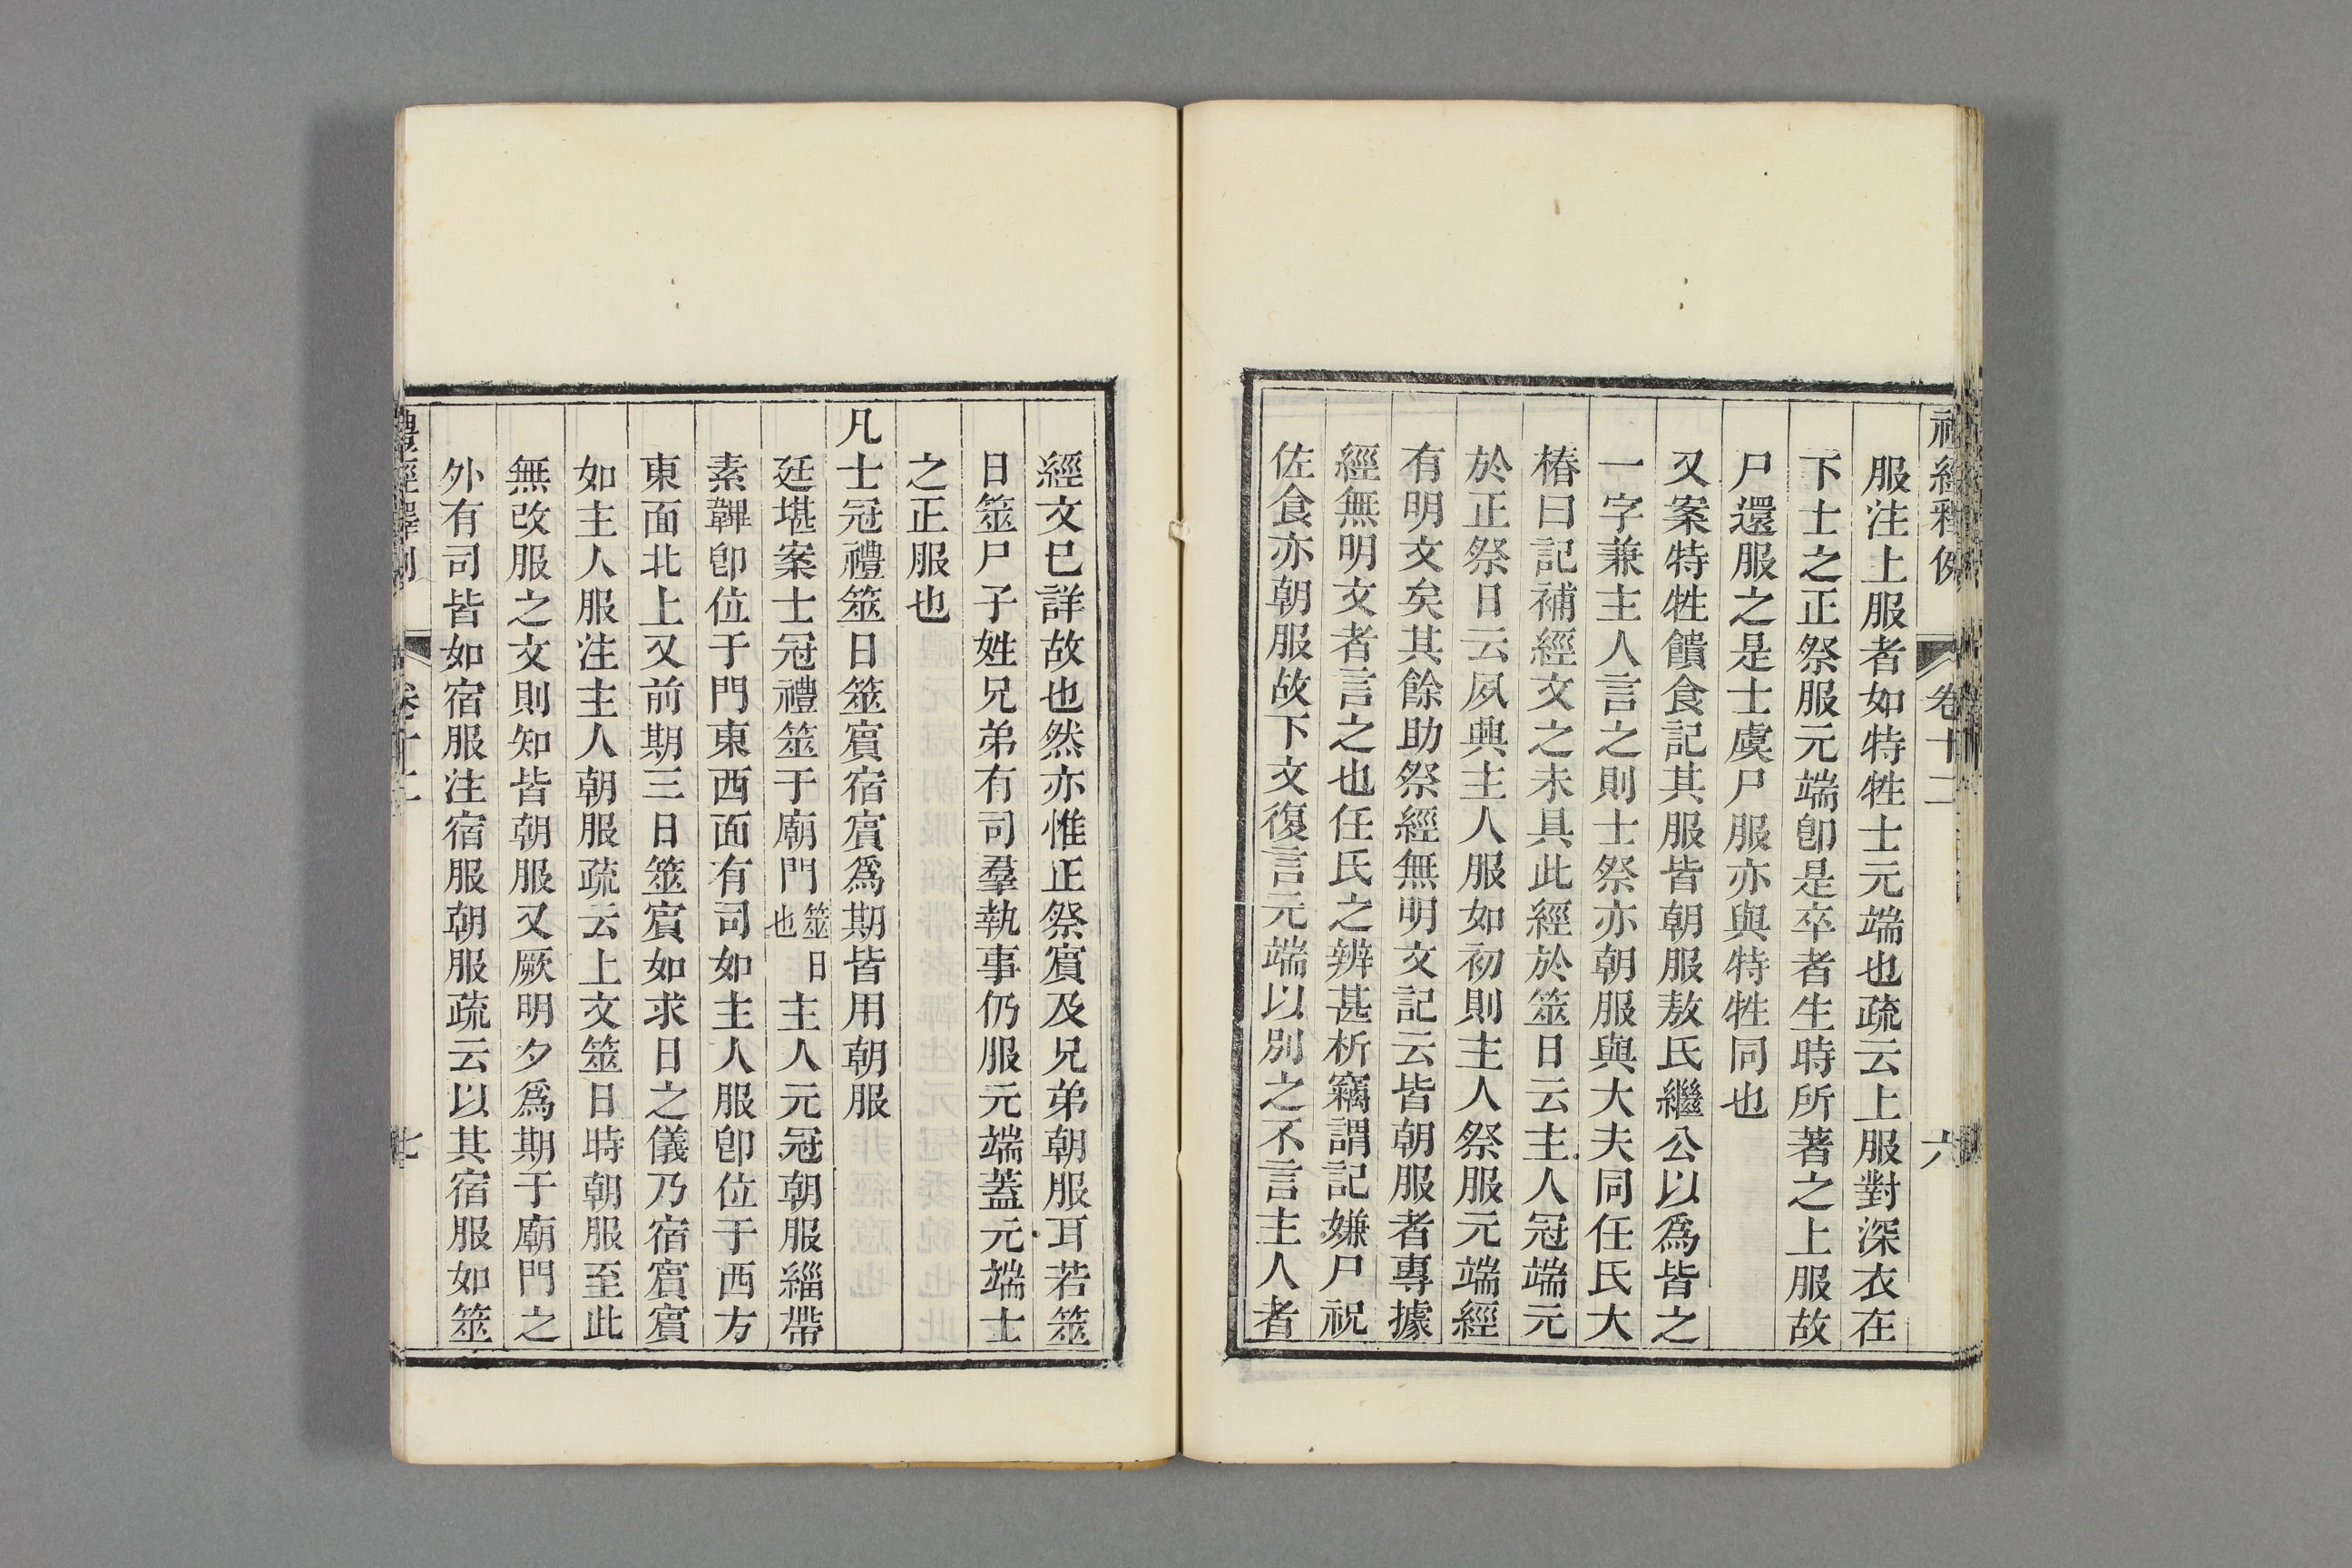 禮經釋例 卷十二 六
服注上服者如特牲士元端也疏云上服對深衣在
下士之正祭服元端卽是卒者生時所著之上服故
尸還服之是士虞尸服亦與特牲同也
又案特牲饋食記其服皆朝服敖氏繼公以爲皆之
一字兼主人言之則士祭亦朝服與大夫同任氏大
椿曰記補經文之未具此經於筮日云主人冠端元
於正祭日云夙興主人服如初則主人祭服元端經
有明文矣其餘助祭經無明文記云皆朝服者專據
經無明文者言之也任氏之辨甚析竊謂記嫌尸祝
佐食亦朝服故下文復言元端以別之不言主人者
經文巳詳故也然亦惟正祭賔及兄弟朝服耳若筮
日筮尸子姓兄弟有司羣執事仍服元端蓋元端士
之正服也
凡士冠禮筮日筮賔宿賔爲期皆用朝服
廷堪案士冠禮筮于廟門筮日也主人元冠朝服緇帶
素韠卽位于門東西面有司如主人服卽位于西方
東面北上又前期三日筮賔如求日之儀乃宿賔賔
如主人服注主人朝服疏云上文筮日時朝服至此
無改服之文則知皆朝服又厥明夕爲期于廟門之
外有司皆如宿服注宿服朝服疏云以其宿服如筮
禮經釋例 卷十二 七